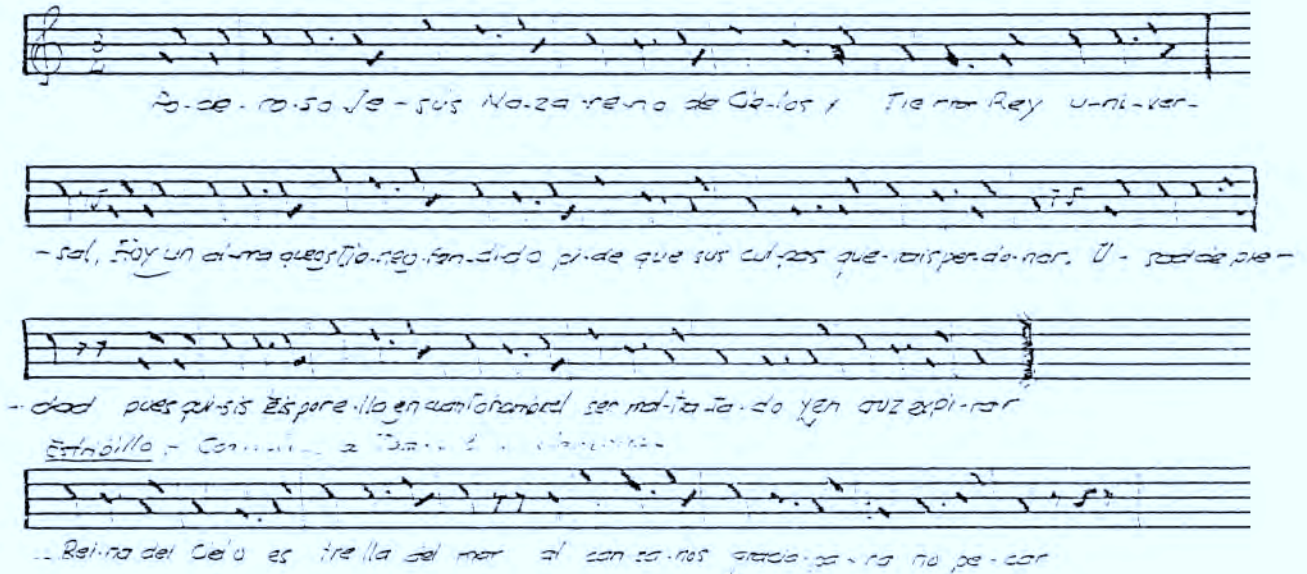 Po-de-ro-so Je-sús Na-za-re-no de Cie-los y Tierra Rey u-ni-ver-
-sal, Hoy un al-ma que os tio-reg-fan-di-do pi-de que sus cul-pas que-rais per-do-nar. U-sad de pie-
-dad pues qui-sis Eis por e-lla en cuanto hombre ser mal-tra-ta-do y en cruz expi-rar
Estribillo -
Rei-na del Cielo es tre lla del mar al can za-nos gracia pa-ra no pe-car